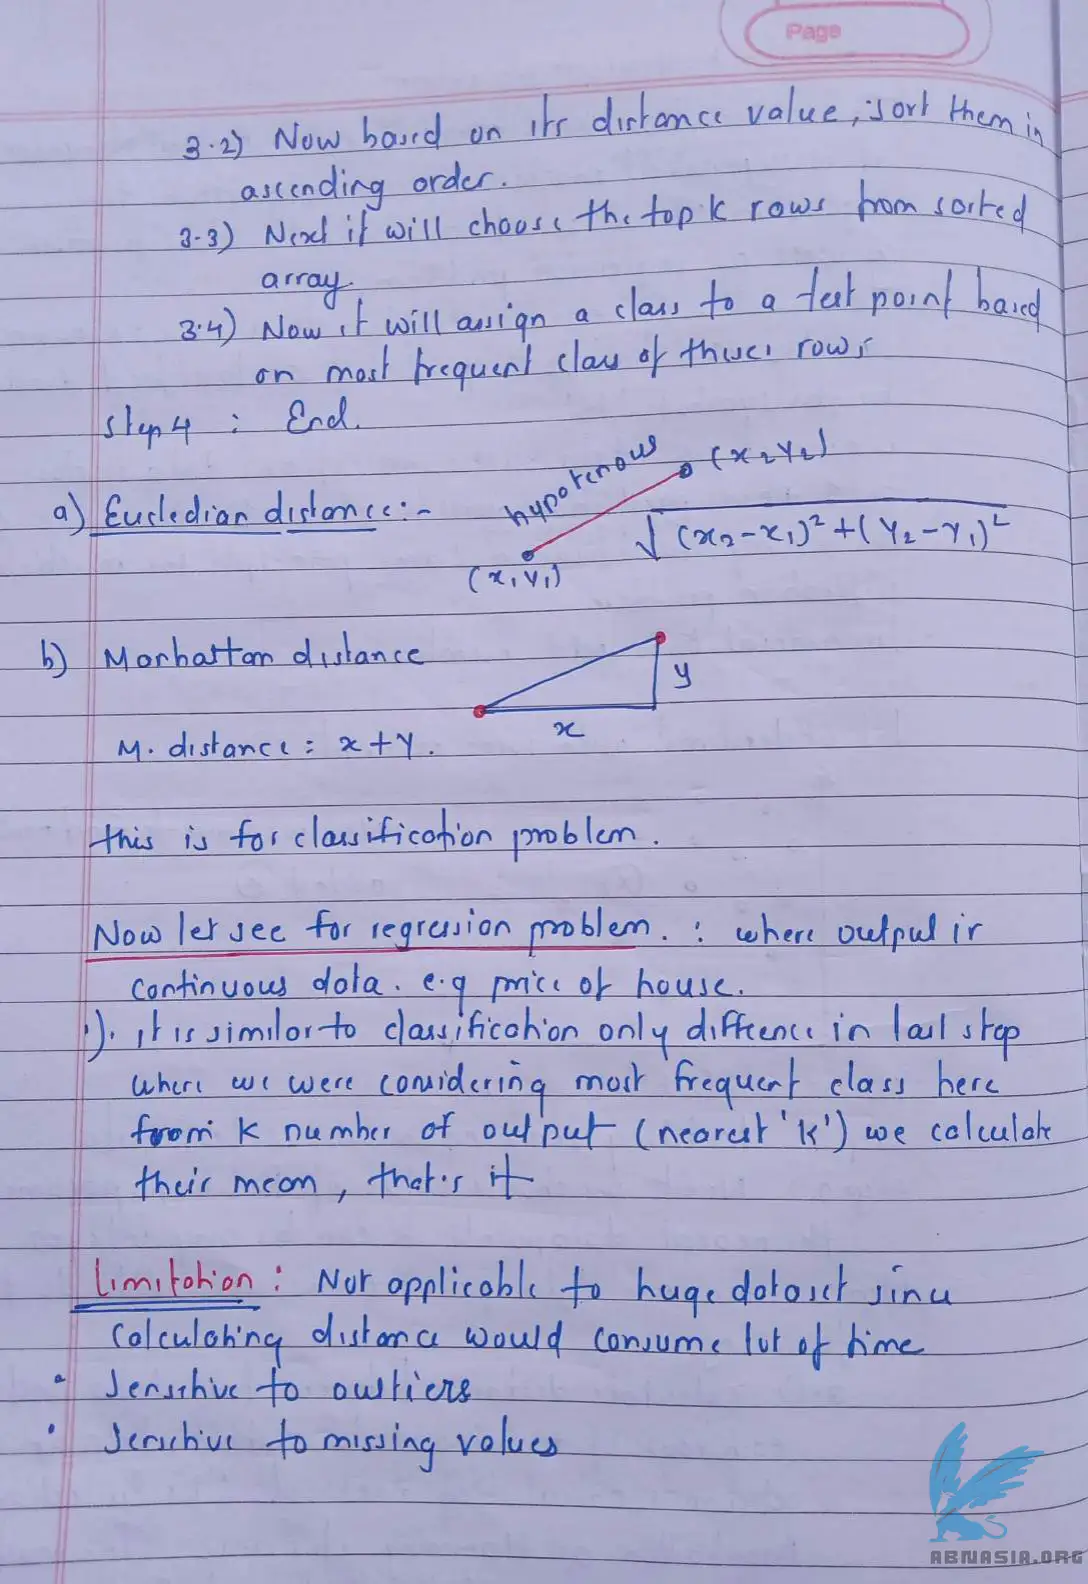 Page
3.2) Now based on its distance value, sort them in
ascending order.
3.3) Next it will choose the top k rows from sorted
array.
3.4) Now it will assign a class to a test point based
on most frequent class of these rows
step 4 : End.
a) Eucledian distance :-
hypotenous
(x2 y2)
√(x2-x1)² + (Y2-Y1)²
(x1 y1)
b) Manhattan distance
y
x
M. distance : x + y.
this is for classification problem.
Now let see for regression problem. : where output is
continuous data. e.g price of house.
1). it is similar to classification only diffcence in last step
where we were considering most frequent class here
from k number of output (nearest 'k') we calculate
their mean, that's it
Limitation : Not applicable to huge dataset since
calculating distance would consume lot of time
• Sensitive to outliers
• Sensitive to missing values
ABNASIA.ORG